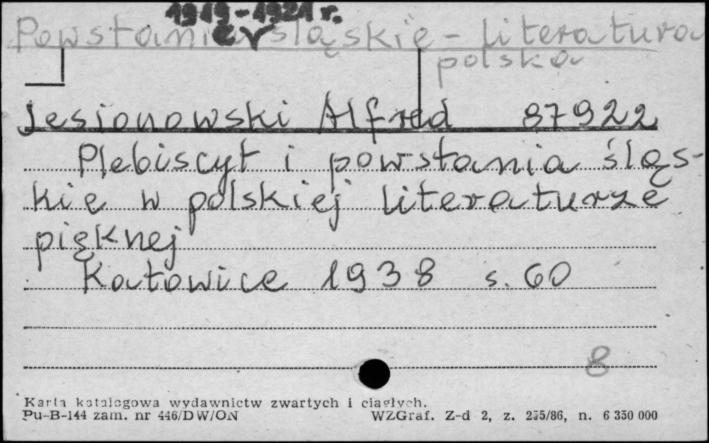 1919-1921 r.
Powstanie śląskie - literatura
polska
Jesionowski Alfred 87922
Plebiscyt i powstania śląs-
kie w polskiej literaturze
pięknej
Katowice 1938 s. 60
8
Karta katalogowa wydawnictw zwartych i ciągłych.
Pu-B-144 zam. nr 446/DW/ON WZGraf. Z-d 2, z. 255/86, n. 6 350 000